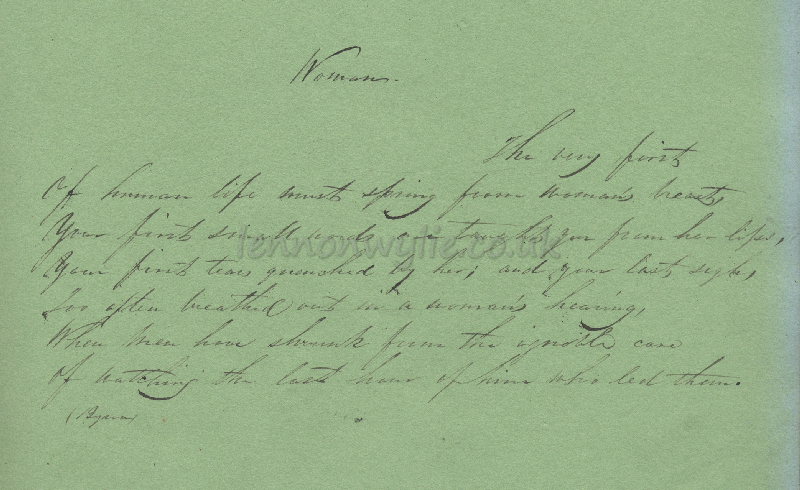 Woman.
The very first
Of human life must spring from woman's breast,
Your first small words are taught you from her lips,
Your first tears quenched by her; and your last sighs,
Too often breathed out in a woman's hearing,
When men have shrunk from the ignoble care
Of watching the last hour of him who led them.
(Byron)
lennonwylie.co.uk